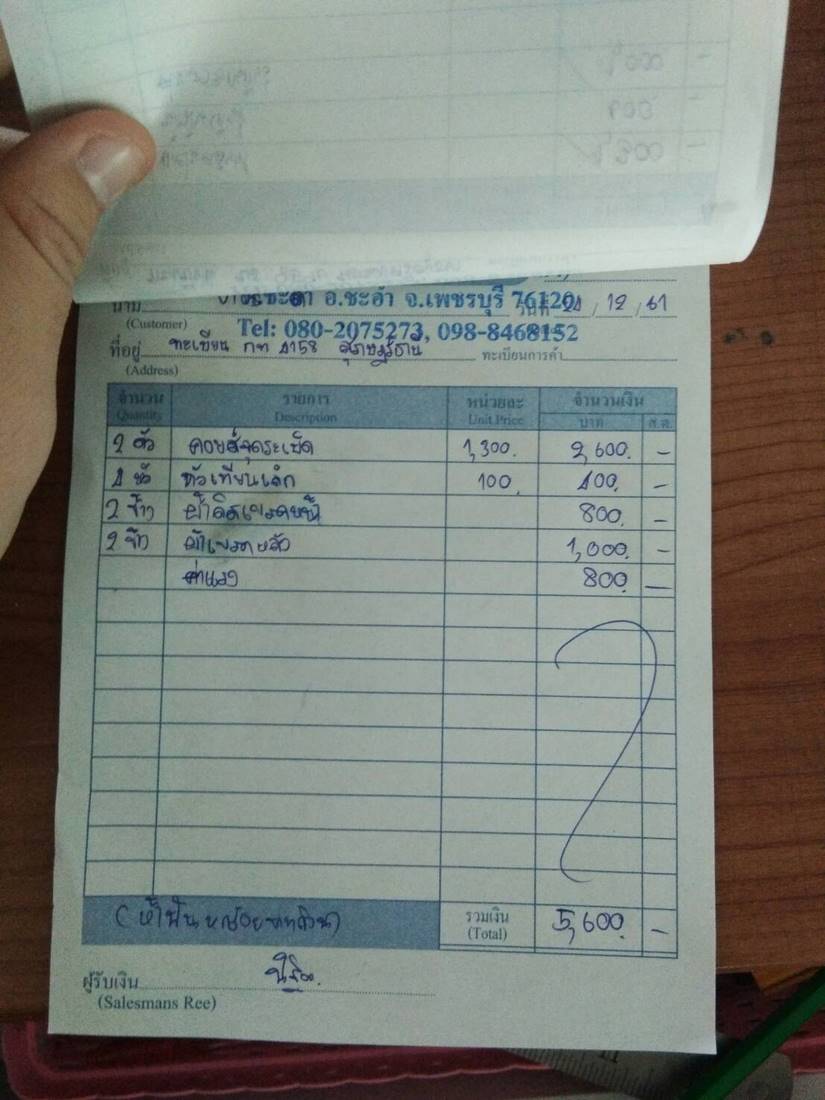 อ.ชะอำ จ.เพชรบุรี 76120
นาม
วันที่ 21 / 12 / 61
(Customer)
Tel: 080-2075273, 098-8468152
ที่อยู่ ทะเบียน กท 4158 สุราษฎร์ธานี ทะเบียนการค้า
(Address)
จำนวน รายการ หน่วยละ จำนวนเงิน
Quantity Description Unit Price บาท ส.ต.
2 ตัว คอยล์จุดระเบิด 1,300. 2,600. -
1 หัว หัวเทียนเล็ก 100. 400. -
2 ข้าง ผ้าดิสเบรคหน้า 800. -
2 ข้าง ผ้าเบรคหลัง 1,000. -
ค่าแรง 800. -
(ห้าพันหกร้อยบาทถ้วน) รวมเงิน 5,600. -
(Total)
ผู้รับเงิน
(Salesmans Ree)